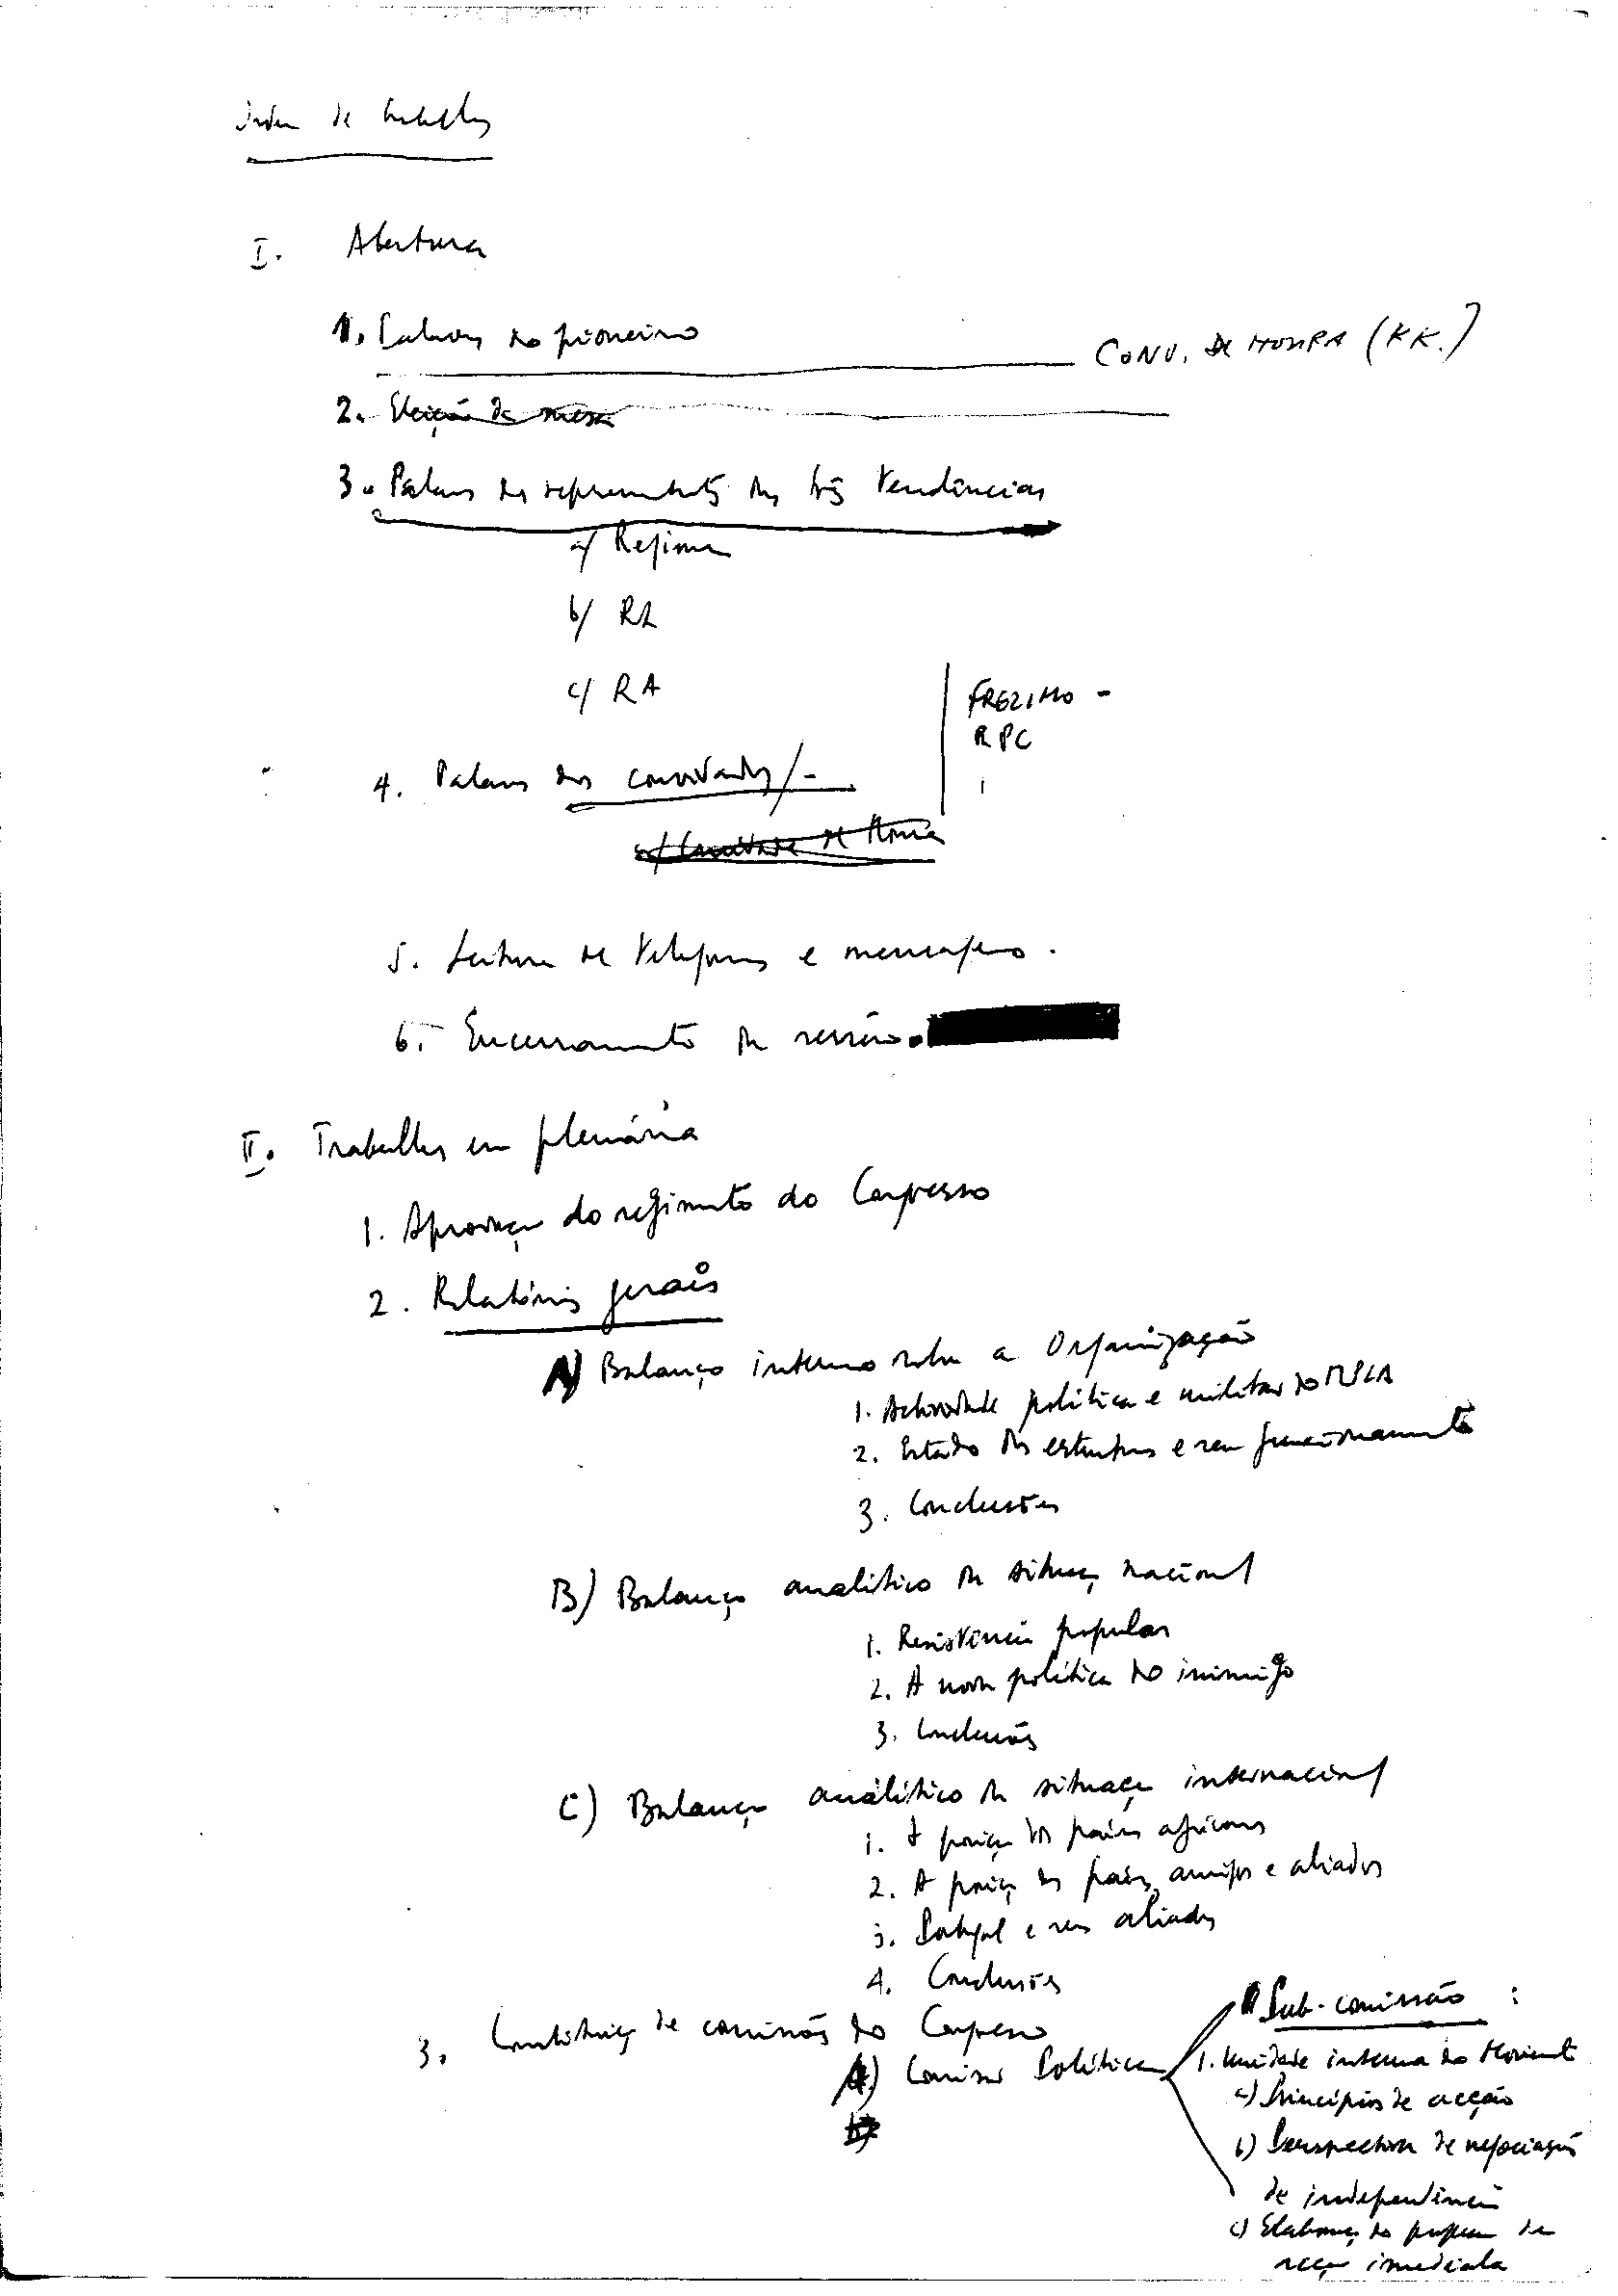 Ordem de trabalhos
I. Abertura
1. Palavras do pioneiro
CONV. DE HONRA (KK.)
2. Eleição da mesa
3. Palavras dos representantes das três tendências
a/ Regime
b/ RL
c/ RA
FRELIMO -
RPC
4. Palavras dos convidados/-
a/ Convidado de Honra
5. Leitura de telegramas e mensagens.
6. Encerramento da sessão.
II. Trabalhos em plenária
1. Aprovação do regimento do Congresso
2. Relatórios gerais
A) Balanço interno sobre a Organização
1. Actividade política e militar do MPLA
2. Estado das estruturas e seu funcionamento
3. Conclusões
B) Balanço analítico da situação nacional
1. Resistência popular
2. A nova política do inimigo
3. Conclusões
C) Balanço analítico da situação internacional
1. A posição dos países africanos
2. A posição dos países amigos e aliados
3. Portugal e seus aliados
4. Conclusões
3. Constituição de comissões do Congresso
A) Comissão Política
b)
Sub-comissão :
1. Unidade interna do Movimento
a) Princípios de acção
b) Perspectiva de negociação
de independência
c) Elaboração do programa de
acção imediata